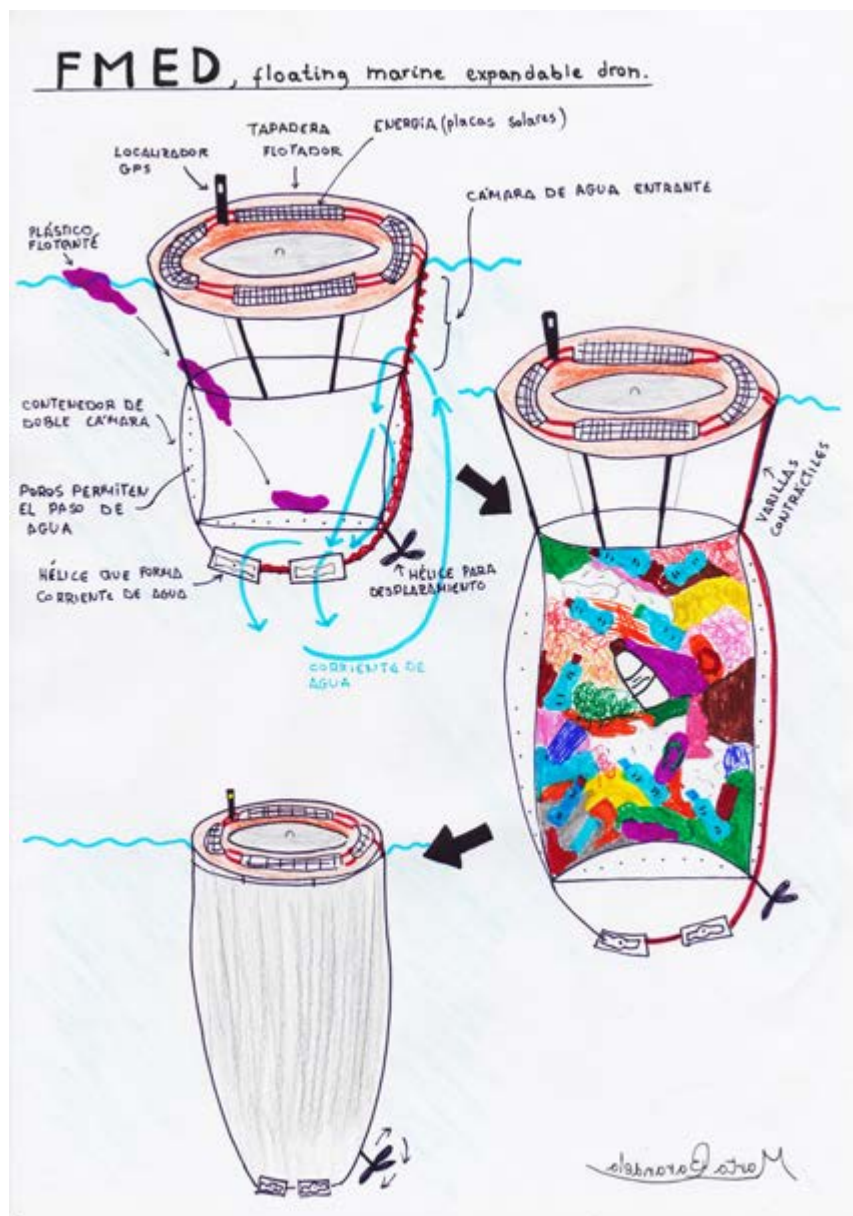 FMED, floating marine expandable dron.
LOCALIZADOR
GPS
TAPADERA
FLOTADOR
ENERGÍA (placas solares)
CÁMARA DE AGUA ENTRANTE
PLÁSTICO
FLOTANTE
CONTENEDOR DE
DOBLE CÁMARA
POROS PERMITEN
EL PASO DE
AGUA
HÉLICE QUE FORMA
CORRIENTE DE AGUA
HÉLICE PARA
DESPLAZAMIENTO
CORRIENTE DE
AGUA
VARILLAS
CONTRÁCTILES
Marta